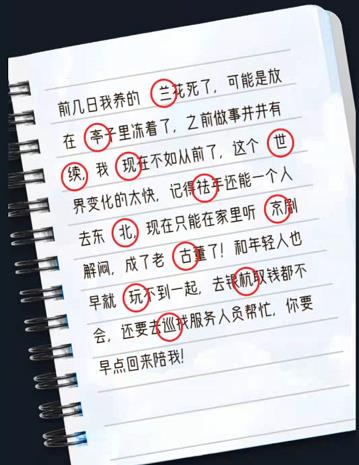 前几日我养的 兰花死了，可能是放
在 亭子里冻着了，之前做事井井有
续，我 现在不如从前了，这个 世
界变化的太快，记得祛年还能一个人
去东 北，现在只能在家里听 京剧
解闷，成了老 古董了！和年轻人也
早就 玩不到一起，去银杭取钱都不
会，还要去巡找服务人员帮忙，你要
早点回来陪我！